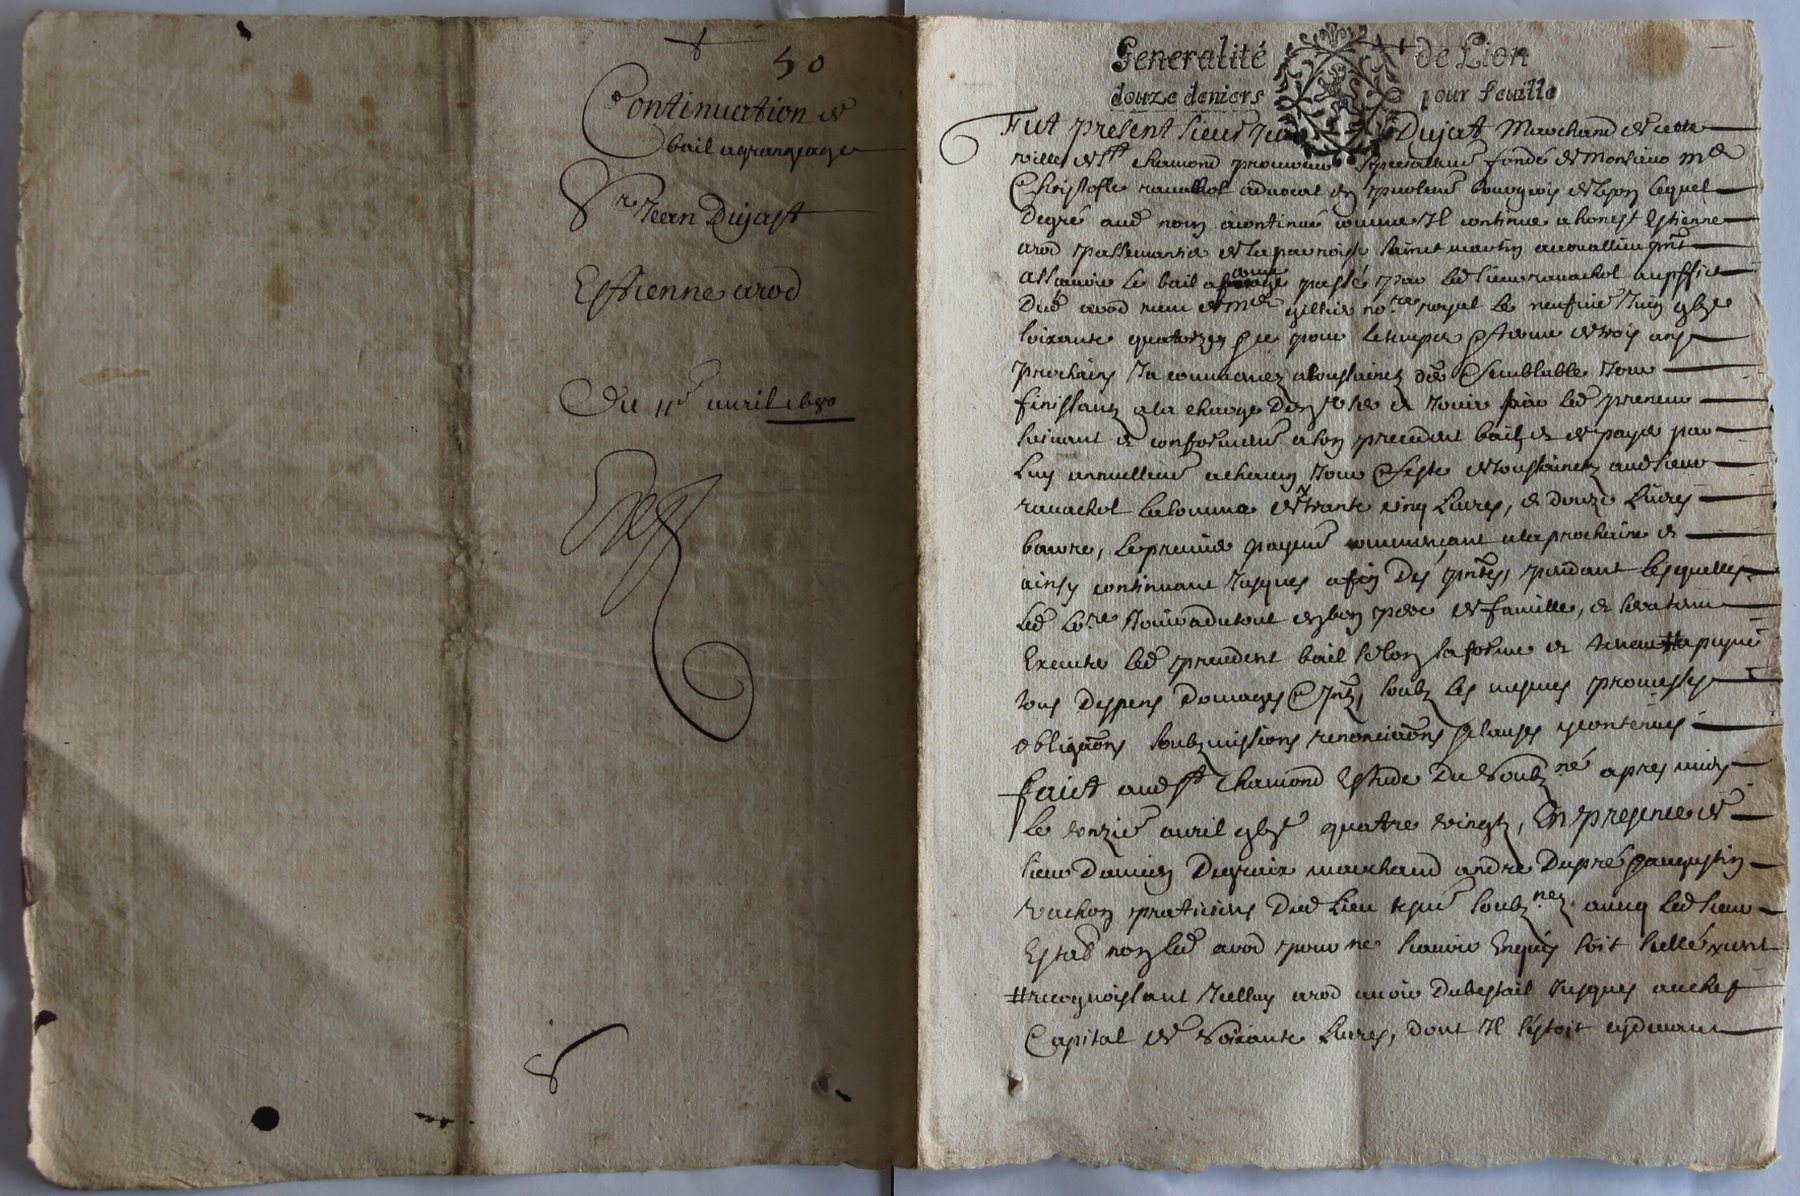 50
Continuation de
bail a grangeage
Sr Jean Dujast
Estienne arod
Du 11e auril 1680
Generalité de Lion
douze deniers pour feuille
Fut present sieur Jean Dujast Marchand de cette
ville de St chamond procureur specialleme fondé de Monsieur Me
Christofle rauachol aduocat en parleme bourgeois de Lyon lequel
De gré aud nom a continué comme Il continue a honest Estienne
arod passemantier de la parroisse sainct martin
assauoir le bail a ferme passé par led sieur rauachol au proffict
Dud arod receu Me gillier nore royal le neufuie Juin
soixante quatorze pour le temps & terme de trois ans
prochains Ja commancez a toussainctz & semblable Jour
finissant a la charge Den Jouir par led preneur
suiuant & conformeme a son precedent bail, & de payer par
Luy annuelleme a chacun Jour & feste de toussainctz aud sieur
rauachol la somme de trante cinq Liures, & douze Liures
beurre, le premier payeme commancant a la prochaine &
ainsy continuant Jusques a fin Des pntes, pendant lesquelles
Led Jouira du tout en bon pere de famille, & sera tenu
Executer led precedent bail selon sa forme & teneur # a peyne
tous Despens Domages & Intz, soubz les mesmes promesses
obligaons soubzmissions renonciaons & clauses y contenues
faict aud St Chamond Estude Du soubzné apres midy
Le onzie auril quatre vingtz, En presence de
sieur Damien marchand andre Dupré & augustin
vachon praticiens Dud Lieu soubznez auecq led sieur
non led arod pour ne scauoir Enquis soit sellé
# recognoissant Icelluy arod auoir Du bestail Jusques au chef
Capital de soixante Liures, dont Il s'estoit cydeuant